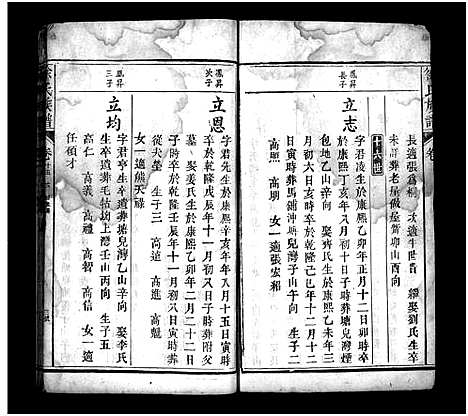 長適張爲利 次適牛時昔 繼娶劉氏生卒
未詳葬老屋後屋背卯山酉向
十六世
鳳昇長子
立志
字君凌生於康熙乙卯年正月十二日卯時卒
於康熙丁亥年八月十日子時葬塘兒灣煙
包地乙山辛向 娶齊氏生於康熙乙未年二
月初六日子時卒於乾隆己巳年十二月十
日寅時葬馬鋪沖垻兒灣子山午向 生子二
高照 高期 女一適張宏相
鳳昇次子
立恩
字君先生於康熙辛亥年八月十五日寅時
卒於乾隆戊辰年十一月初八日子時葬附父
墓 娶姜氏生於康熙癸亥年二月二十二日
子時卒於乾隆壬辰年十一月初八日寅時葬
從夫塋 生子三 高遠 高進 高魁
女一適熊天祿
鳳昇三子
立均
字君平生卒遺葬塘兒灣乙山辛向 娶李氏
生卒遺葬毛坳上灣壬山丙向 生子五
高仁 高義 高智 高信 女一適
任碩才
族譜